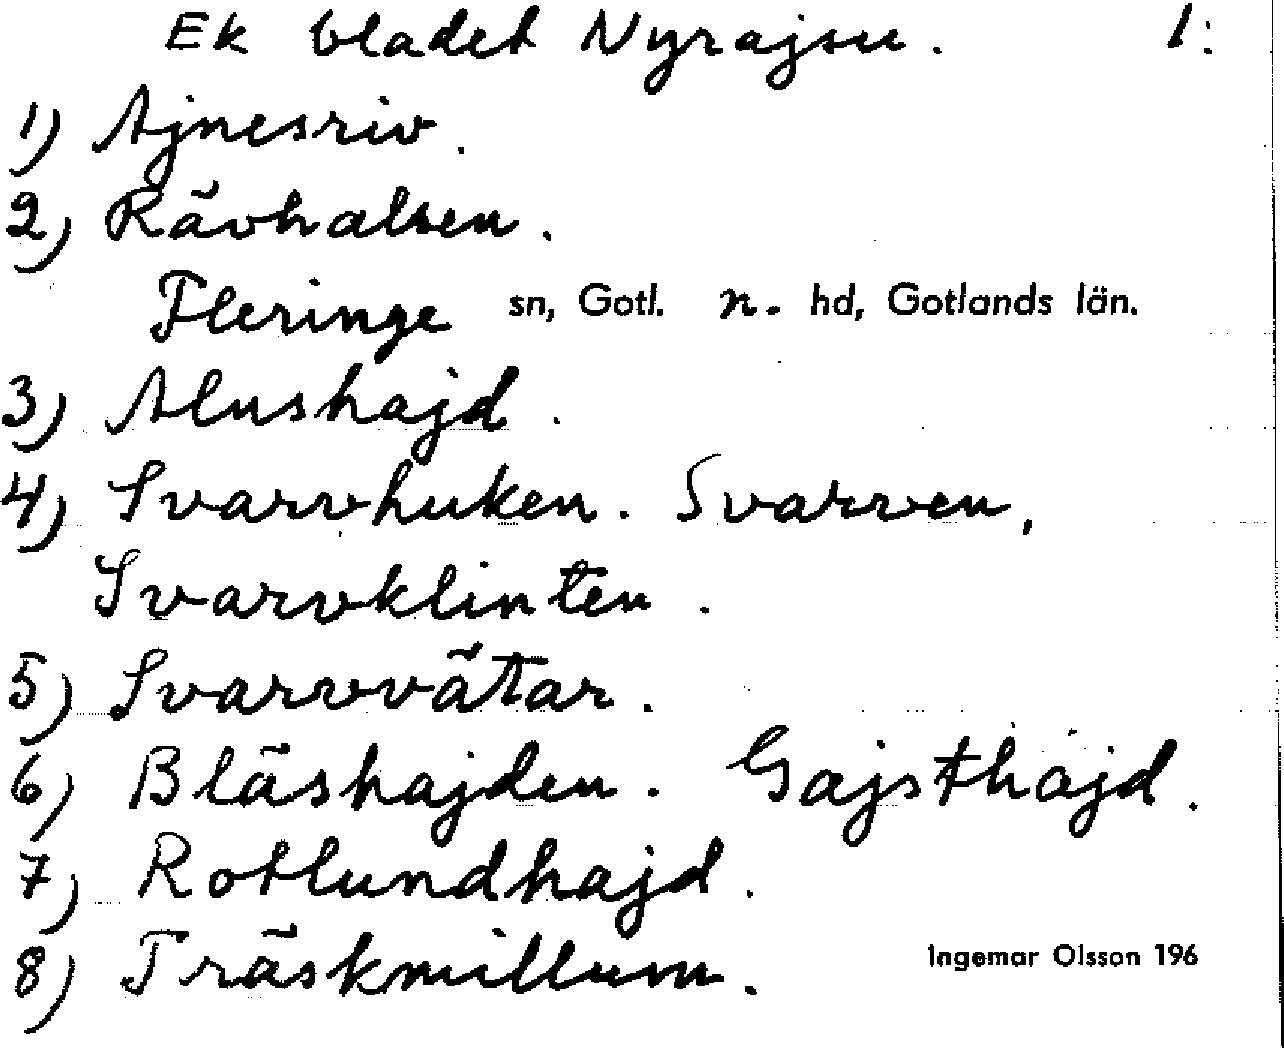 Ek bladet Nyrajsu. 1:
1) Ajnesriv.
2) Rävhalsen.
Fleringe sn, Gotl. n. hd, Gotlands län.
3) Alnshajd.
4) Svarvhuken. Svarven,
Svarvklinten.
5) Svarvvätar.
6) Bläshajden. Gajsthajd.
7) Rotlundhajd.
8) Träskmillum.
Ingemar Olsson 196